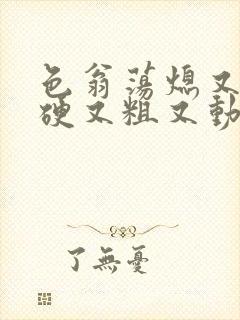 色翁荡熄又
硬又粗又動
了無憂